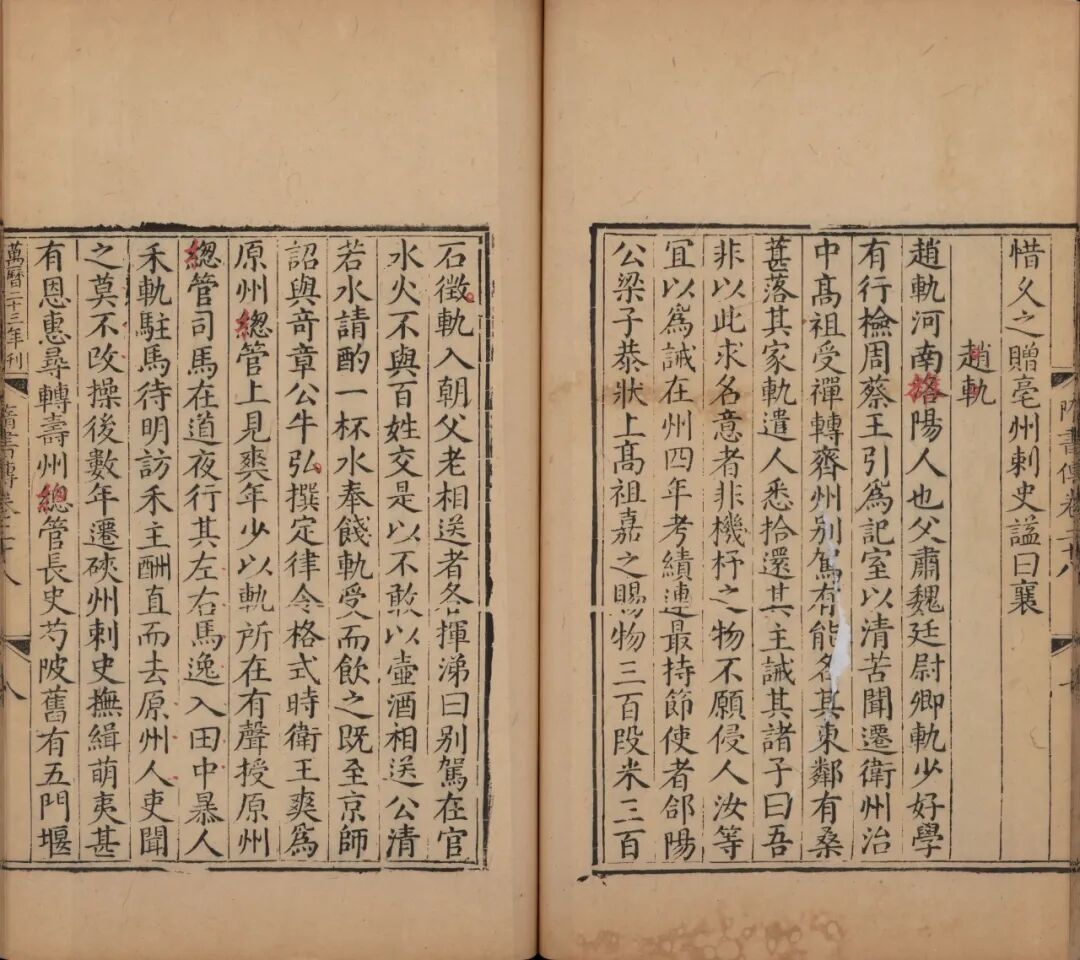 隋書傳卷三十八
惜久之贈亳州刺史謚曰襄
趙軌
趙軌河南洛陽人也父肅魏廷尉卿軌少好學
有行檢周蔡王引爲記室以清苦聞遷衛州治
中髙祖受禪轉齊州别駕有能名其東鄰有桑
葚落其家軌遣人悉拾還其主誡其諸子曰吾
非以此求名意者非機杼之物不願侵人汝等
宜以爲誡在州四年考績連最持節使者郃陽
公梁子恭狀上髙祖嘉之賜物三百段米三百
石徵軌入朝父老相送者各揮涕曰别駕在官
水火不與百姓交是以不敢以壺酒相送公清
若水請酌一杯水奉餞軌受而飲之既至京師
詔與竒章公牛弘撰定律令格式時衛王爽爲
原州總管上見爽年少以軌所在有聲授原州
總管司馬在道夜行其左右馬逸入田中暴人
禾軌駐馬待明訪禾主酬直而去原州人吏聞
之莫不改操後數年遷硤州刺史撫緝萌夷甚
有恩惠尋轉壽州總管長史芍陂舊有五門堰
萬曆二十三年刊 隋書傳卷三十八 八